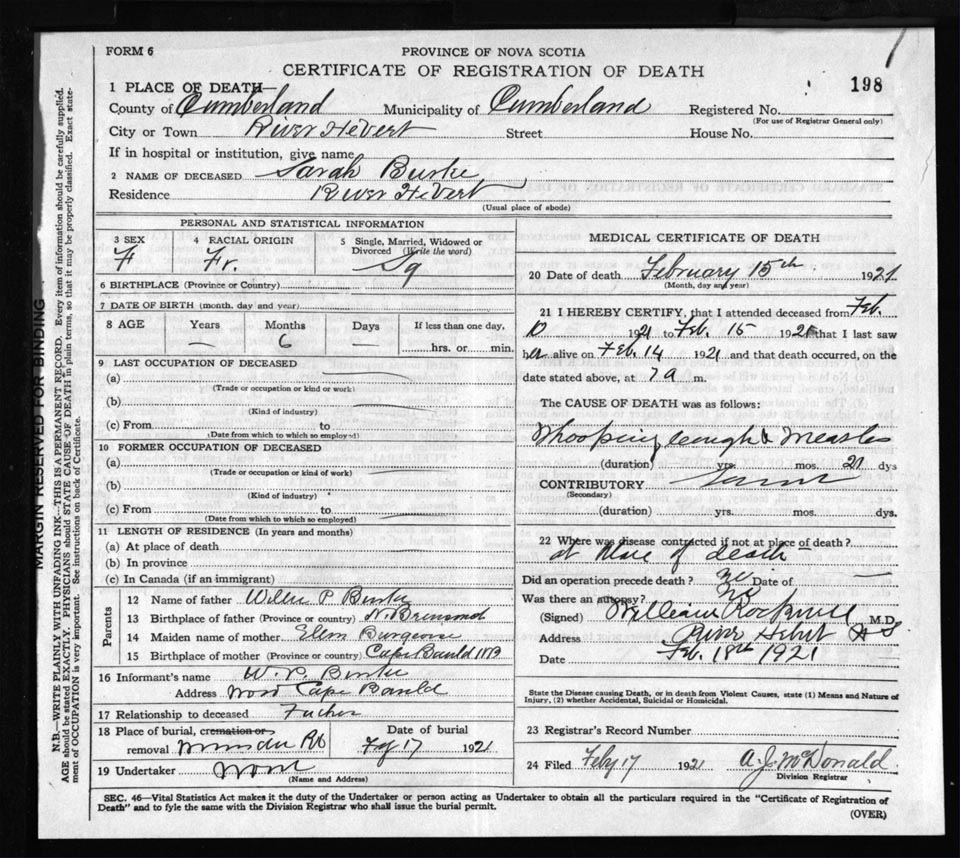 FORM 6
PROVINCE OF NOVA SCOTIA
CERTIFICATE OF REGISTRATION OF DEATH
198
1 PLACE OF DEATH—
County of Cumberland Municipality of Cumberland Registered No.
(For use of Registrar General only)
City or Town River Hebert Street House No.
If in hospital or institution, give name
2 NAME OF DECEASED Sarah Burke
Residence River Hebert
(Usual place of abode)
PERSONAL AND STATISTICAL INFORMATION
3 SEX F
4 RACIAL ORIGIN Fr.
5 Single, Married, Widowed or Divorced (Write the word) Sg
6 BIRTHPLACE (Province or Country)
7 DATE OF BIRTH (month, day and year)
8 AGE Years Months Days If less than one day,
— 6 — hrs. or min.
9 LAST OCCUPATION OF DECEASED
(a)
(Trade or occupation or kind or work)
(b)
(Kind of industry)
(c) From to
(Date from which to which so employed)
10 FORMER OCCUPATION OF DECEASED
(a)
(Trade or occupation or kind of work)
(b)
(Kind of industry)
(c) From to
(Date from which to which so employed)
11 LENGTH OF RESIDENCE (In years and months)
(a) At place of death
(b) In province
(c) In Canada (if an immigrant)
Parents
12 Name of father Willie P Burke
13 Birthplace of father (Province or country) N. Brunswd
14 Maiden name of mother Burgeois
15 Birthplace of mother (Province or country) Cape Bauld NB
16 Informant's name W. P. Burke
Address Cape Bauld
17 Relationship to deceased Father
18 Place of burial, cremation or removal Date of burial
Feb 17 1921
19 Undertaker
(Name and Address)
MEDICAL CERTIFICATE OF DEATH
20 Date of death February 15th 1921
(Month, day and year)
21 I HEREBY CERTIFY, that I attended deceased from Feb.
10 1921 to Feb. 15 1921 that I last saw
her alive on Feb. 14 1921 and that death occurred, on the
date stated above, at 7 a m.
The CAUSE OF DEATH was as follows:
Whooping cough & Measles
(duration) yrs. mos. 21 dys
CONTRIBUTORY
(Secondary)
(duration) yrs. mos. dys.
22 Where was disease contracted if not at place of death?
at place of death
Did an operation precede death? no Date of —
Was there an autopsy? no
(Signed) William Rockwell M.D.
Address River Hebert NS
Date Feb. 18th 1921
State the Disease causing Death, or in death from Violent Causes, state (1) Means and Nature of
Injury, (2) whether Accidental, Suicidal or Homicidal.
23 Registrar's Record Number
24 Filed Feby 17 1921 A. J. McDonald
Division Registrar
SEC. 46—Vital Statistics Act makes it the duty of the Undertaker or person acting as Undertaker to obtain all the particulars required in the "Certificate of Registration of
Death" and to fyle the same with the Division Registrar who shall issue the burial permit.
(OVER)
MARGIN RESERVED FOR BINDING
N.B.—WRITE PLAINLY WITH UNFADING INK—THIS IS A PERMANENT RECORD. Every item of information should be carefully supplied.
AGE should be stated EXACTLY. PHYSICIANS should STATE CAUSE OF DEATH in plain terms, so that it may be properly classified. Exact state-
ment of OCCUPATION is very important. See instructions on back of Certificate.